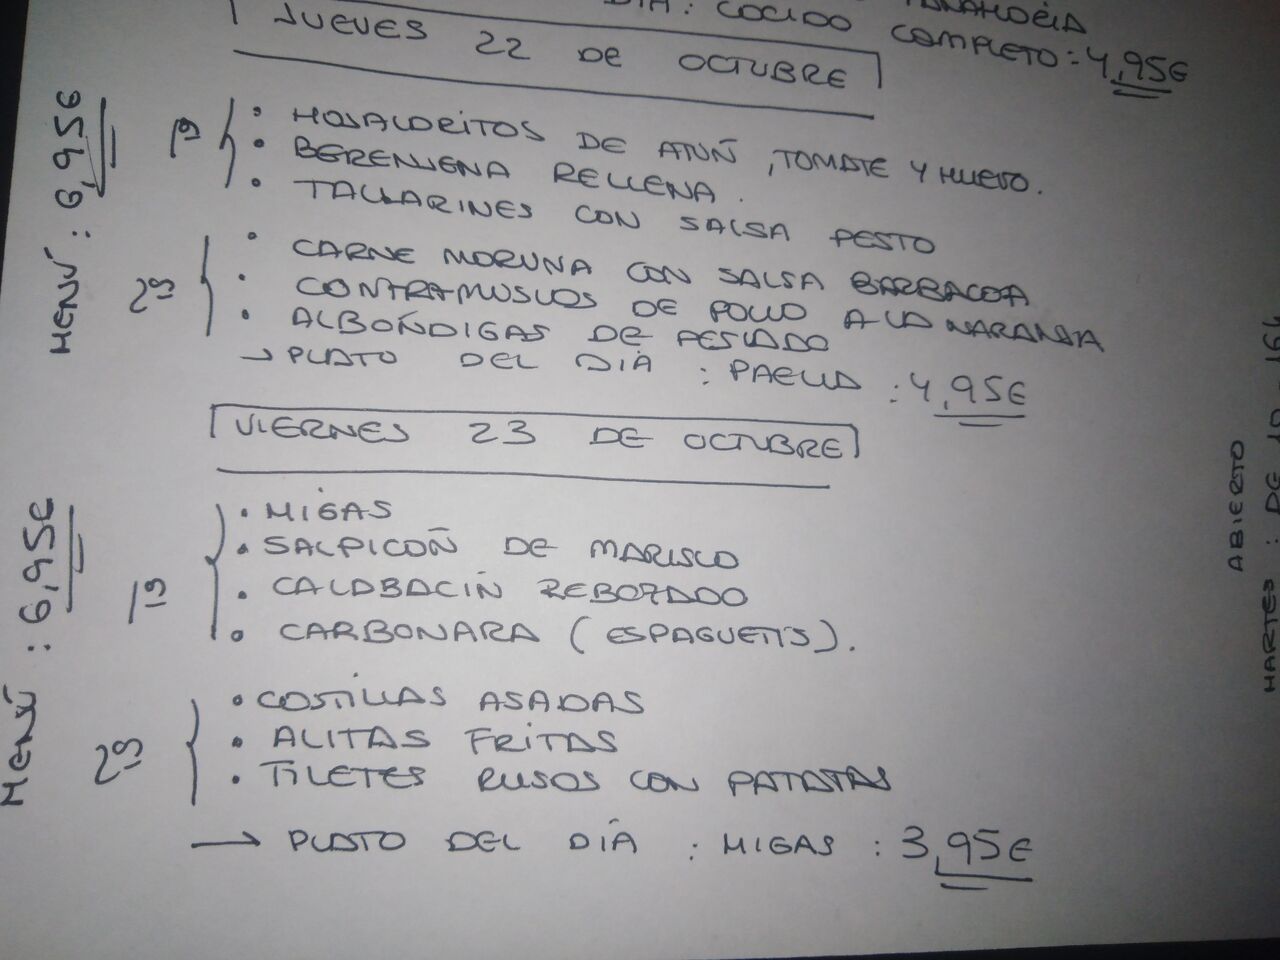 DÍA: COCIDO COMPLETO: 4,95€
JUEVES 22 DE OCTUBRE
MENÚ: 6,95€
1º
• HOJALDRITOS DE ATÚN, TOMATE Y HUEVO.
• BERENJENA RELLENA.
• TALLARINES CON SALSA PESTO
2º
• CARNE MORUNA CON SALSA BARBACOA
• CONTRAMUSLOS DE POLLO A LA NARANJA
• ALBÓNDIGAS DE PESCADO
→ PLATO DEL DÍA: PAELLA: 4,95€
VIERNES 23 DE OCTUBRE
MENÚ: 6,95€
1º
• MIGAS
• SALPICÓN DE MARISCO
• CALABACÍN REBOZADO
• CARBONARA (ESPAGUETIS).
2º
• COSTILLAS ASADAS
• ALITAS FRITAS
• FILETES RUSOS CON PATATAS
→ PLATO DEL DÍA: MIGAS: 3,95€
ABIERTO
MARTES: DE 10